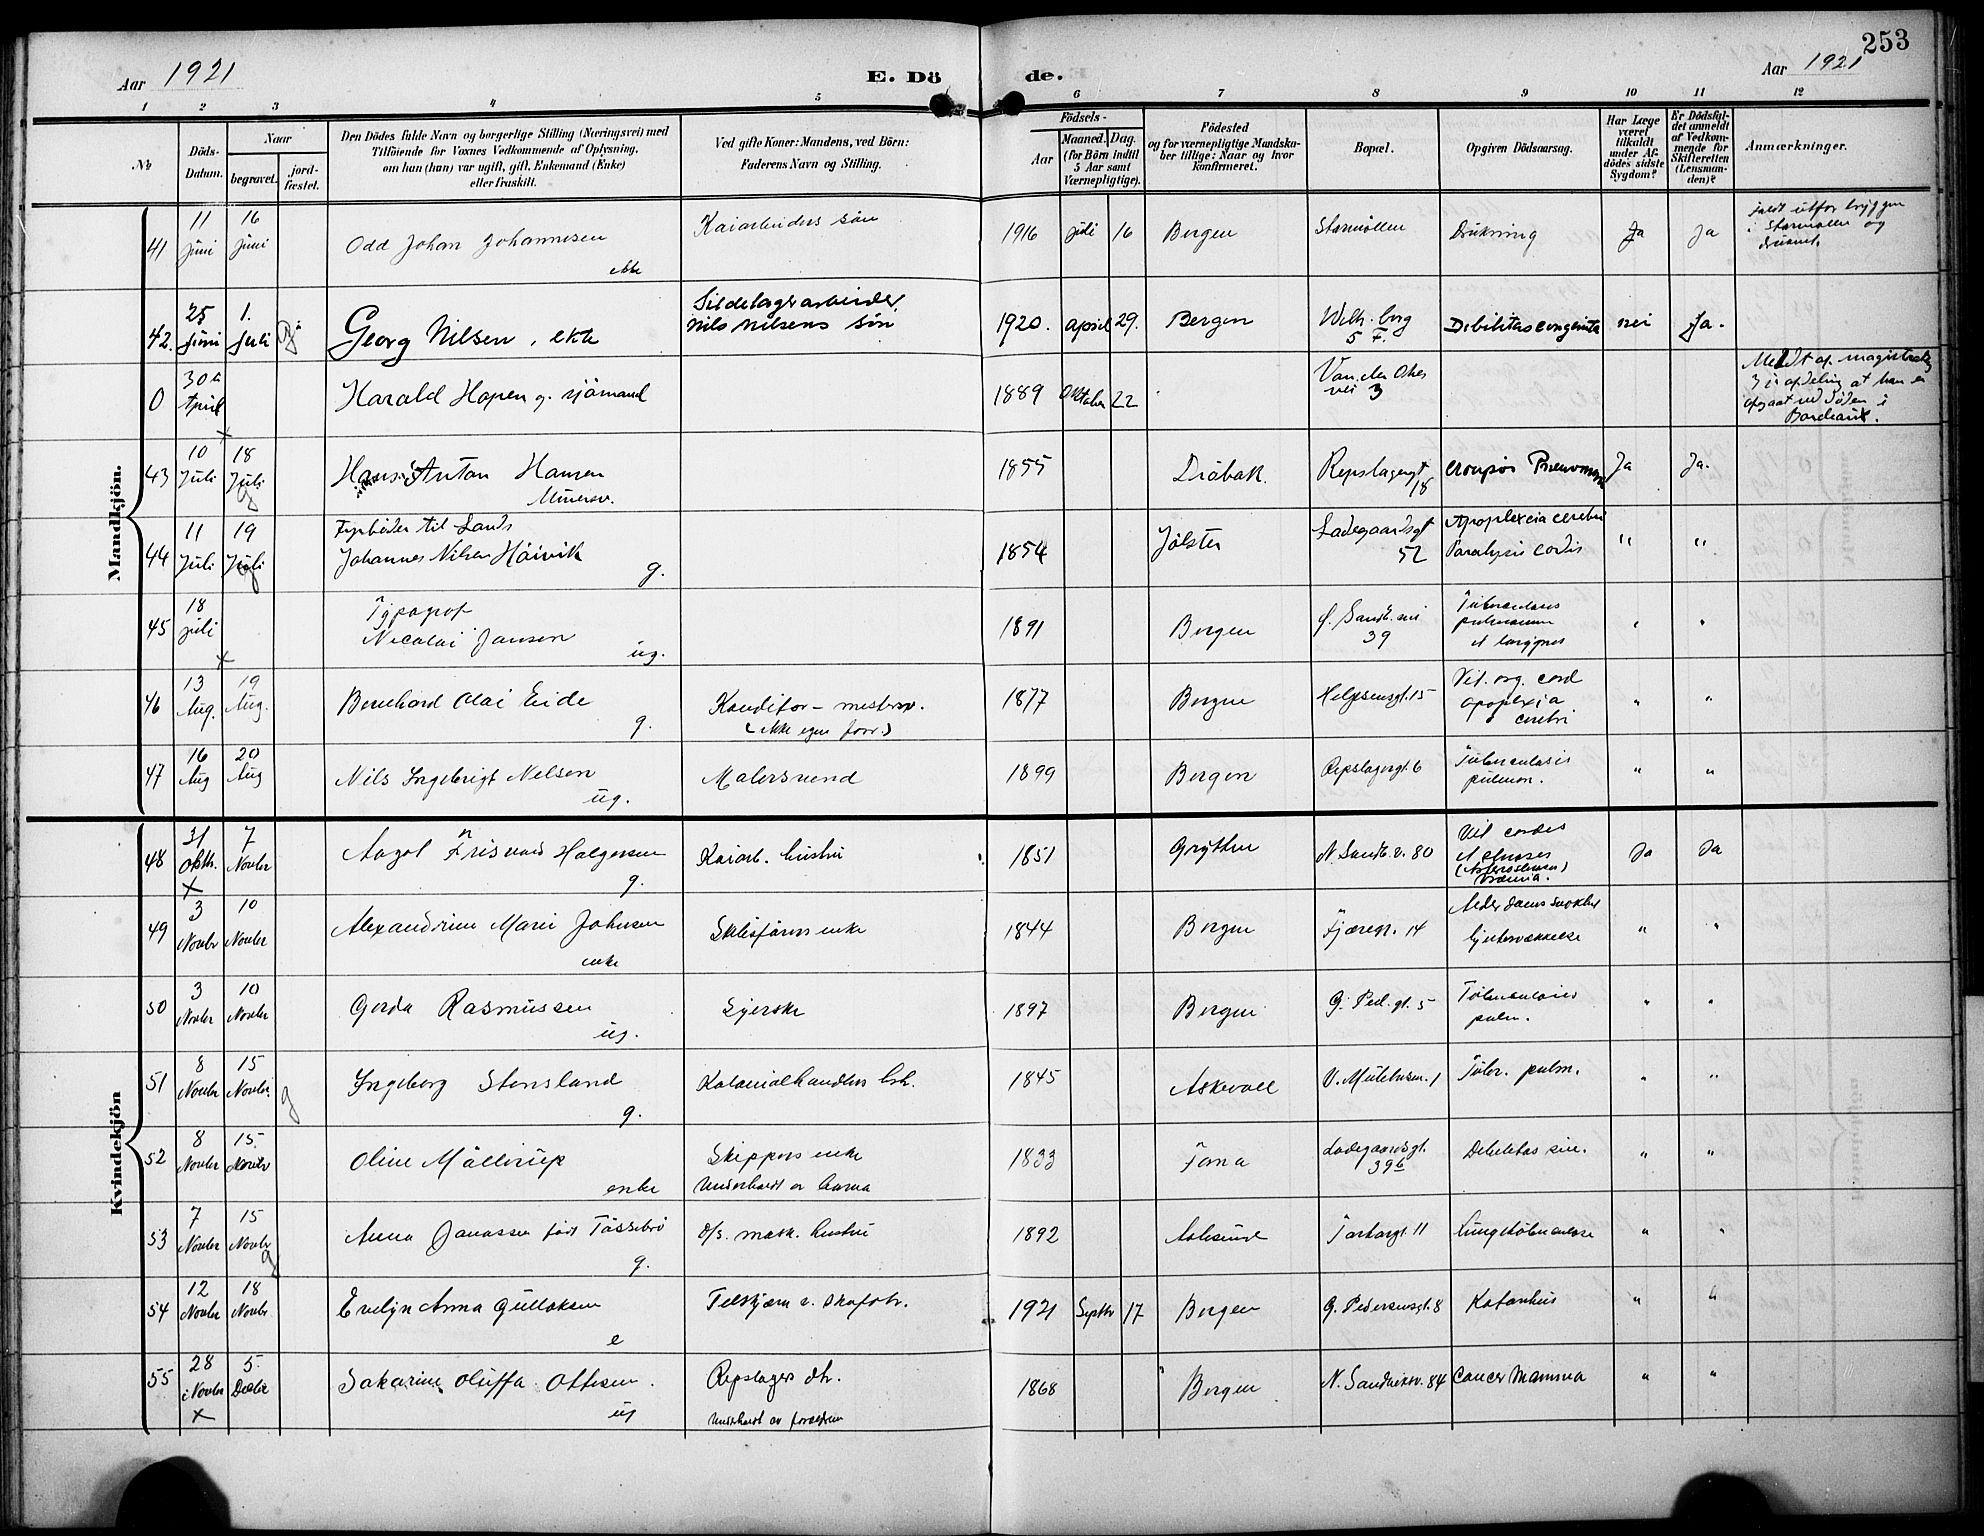 253
Aar 1921
E. Dö de.
Aar 1921
1 2 3 4 5 6 7 8 9 10 11 12
№
Döds-
Datum.
Naar
begravet.
jord-
fæstet.
Den Dödes fulde Navn og borgerlige Stilling (Næringsvei) med
Tilföiende for Voxnes Vedkommende af Oplysning,
om han (hun) var ugift, gift, Enkemand (Enke)
eller fraskilt.
Ved gifte Koner: Mandens, ved Börn:
Faderens Navn og Stilling.
Födsels-
Aar
Maaned. Dag.
(for Börn indtil
5 Aar samt
Værnepligtige).
Födested
og for værnepligtige Mandska-
ber tillige: Naar og hvor
konfirmeret.
Bopæl.
Opgiven Dödsaarsag.
Har Læge
været
tilkaldt
under Af-
dödes sidste
Sygdom?
Er Dödsfal-
det anmeldt
af Vedkom-
mende for
Skifteretten
(Lensman-
den)?
Anmærkninger.
Mandkjön.
41 11 Juni 16 Juni Odd Johan Johannesen ekte Kaiarbeiders sön 1916 juli 16 Bergen Störmöllen Drukning Ja Ja
42. 25 juni 1. Juli Georg Nilsen, ekte Sildelagerarbeider Nils Nilsens sön 1920. april 29. Bergen Welh. borg 5 F. Debilitas congenita nei Ja.
0 30te April Harald Hopen g. sjömand 1889 Oktober 22 3
Meldt af magistratens
3 die afdeling at han er
Bordeaux.
43 10 Juli 18 Juli Hans Anton Hansen Murersv. 1855 Dröbak. Repslagergt 18 croupös Pneumoni Ja Ja.
44 11 Juli 19 Juli Fyrböder til Lands Johannes Nilsen Höivik g. 1854 Jölster Ladegaardsgt 52 Apoplexcia cerebri Paralysis cordis " "
45 18 juli Typograf Nicolai Jansen ug. 1891 Bergen 39 Tuberculosis pulmonum et laryngis " "
46 13 Aug. 19 Aug. Bernhard Olai Eide g. Konditor-mestersv. (ikke egen forr.) 1877 Bergen Helgesensgt. 15 Vit. org. cord apoplexia cerebri " "
47 16 Aug 20 Aug Nils Ingebrigt Nelson ug. Malersvend 1899 Bergen Repslagergt. 6 Tuberculosis pulmon. " "
Kvindekjön
48 31 Oktbr. 7 Novbr Holgersen g. Kaiarb. hustru 1851 Grytten N. Sandv. v. 80 Vit cordis Uræmia. Ja Ja
49 3 Novbr 10 Novbr Alexandrine Marie Johnsen enke Skibsförers enke 1844 Bergen Fjæregr. 14 Alderdomssvækkelse hjertesvækkelse " "
50 3 Novbr 10 Novbr Gerda Rasmussen ug. Syerske 1897 Bergen G. Ped. gt. 5 Tuberculosis pulm. " "
51 8 Novbr 15 Novbr. Ingeborg Stensland g. Kolonialhandlers hst. 1845 Askevold 1 Tuber. pulm. " "
52 8 Novbr 15 Novbr Oline Möllerup enke Skippers enke 1833 Fana Ladegaardsgt. 39 b Debilitas sen. " "
53 7 Novbr 15 Novbr Anna Jonassen född Tössebro g. d/s. mask. hustru 1892 Aalesund 11 Lungetuberculose " "
54 12 Novbr 18 Novbr Evelyn Anna Gulloksen e 1921 Septbr 17 Bergen G. Pedersensgt. 8 " "
55 28 Novbr 5. Decbr Sakarine Oluffa Ottesen. ug Repslagers dtr. Underholdt av forældrene 1868 Bergen N. Sandviksv. 84 Cancer Mamma " "